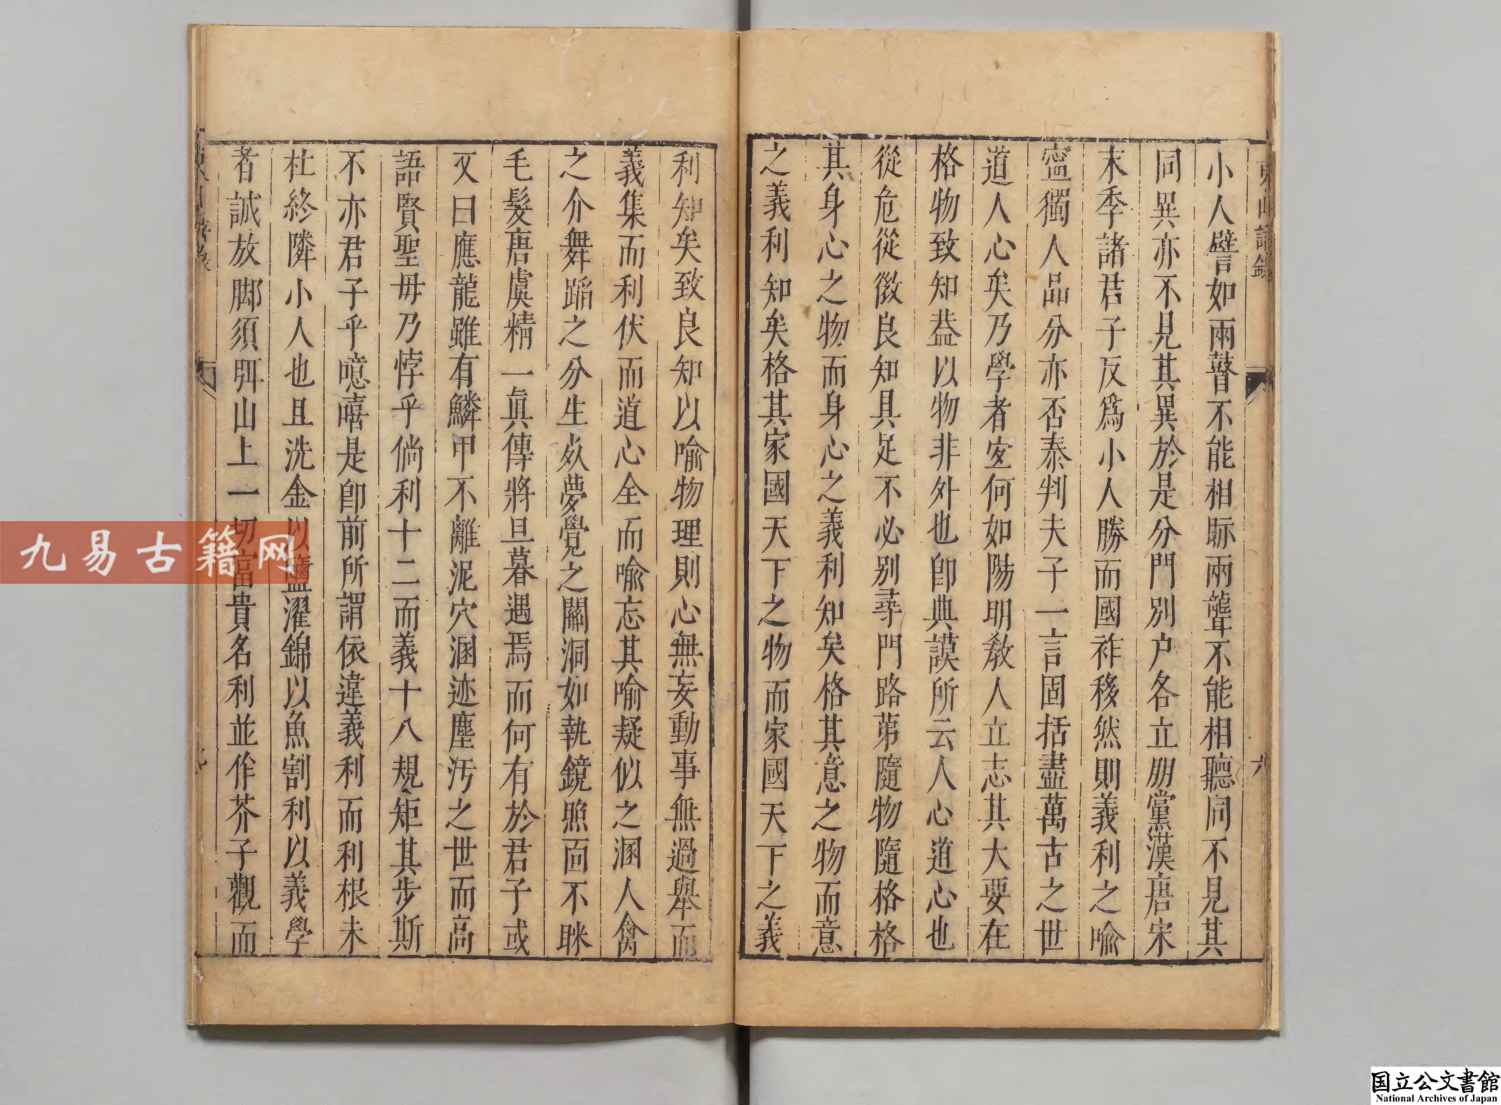 小人譬如兩瞽不能相眎兩聾不能相聽同不見其
同異亦不見其異於是分門別户各立朋黨漢唐宋
末季諸君子反爲小人勝而國祚移然則義利之喻
寧獨人品分亦否泰判夫子一言固括盡萬古之世
道人心矣乃學者宜何如陽明教人立志其大要在
格物致知葢以物非外也卽典謨所云人心道心也
從危從微良知具足不必别尋門路第隨物隨格格
其身心之物而身心之義利知矣格其意之物而意
之義利知矣格其家國天下之物而家國天下之義
利知矣致良知以喻物理則心無妄動事無過舉而
義集而利伏而道心全而喻忘其喻疑似之溷人禽
之介舞蹈之分生死夢覺之關洞如執鏡照面不眯
毛髮唐虞精一眞傳將旦暮遇焉而何有於君子或
又曰應龍雖有鱗甲不離泥穴溷迹塵汚之世而高
語賢聖毋乃悖乎倘利十二而義十八規矩其步斯
不亦君子乎噫嘻是卽前所謂依違義利而利根未
杜終隣小人也且洗金以鹽濯錦以魚割利以義學
者誠放脚須弭山上一切富貴名利並作芥子觀而
九易古籍网
国立公文書館
National Archives of Japan